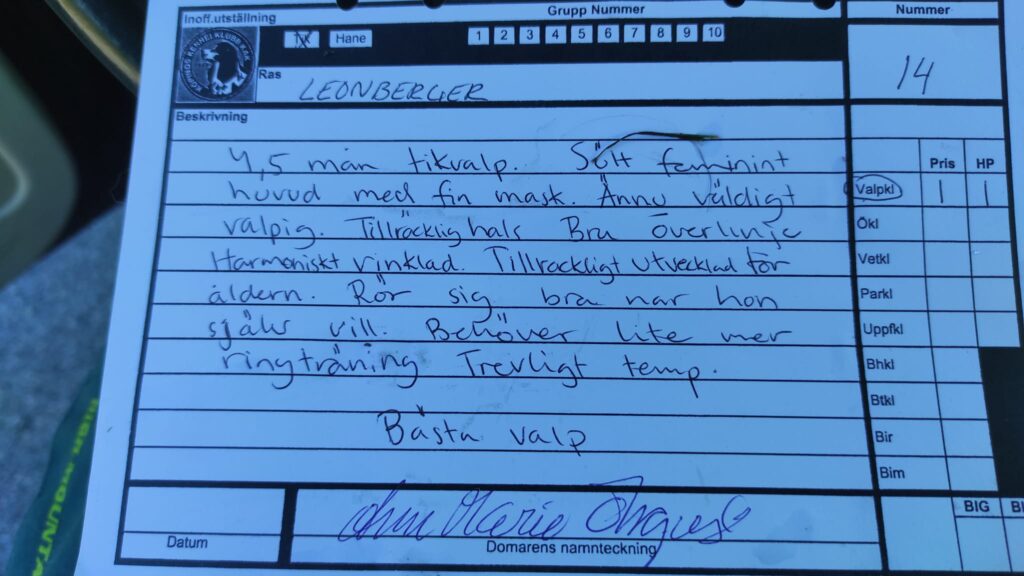 Inoff.utställning
Grupp Nummer
Nummer
Tik Hane
1 2 3 4 5 6 7 8 9 10
Ras
LEONBERGER
14
Beskrivning
4,5 mån tikvalp. Sött feminint
huvud med fin mask. Ännu väldigt
valpig. Tillräcklig hals Bra överlinje
Harmoniskt vinklad. Tillräckligt utvecklad för
åldern. Rör sig bra när hon
själv vill. Behöver lite mer
ringträning Trevligt temp.
Bästa valp
Pris HP
Valpkl 1 1
Ökl
Vetkl
Parkl
Uppfkl
Bhkl
Btkl
Bir
Bim
BIG
Datum
Marie
Domarens namnteckning